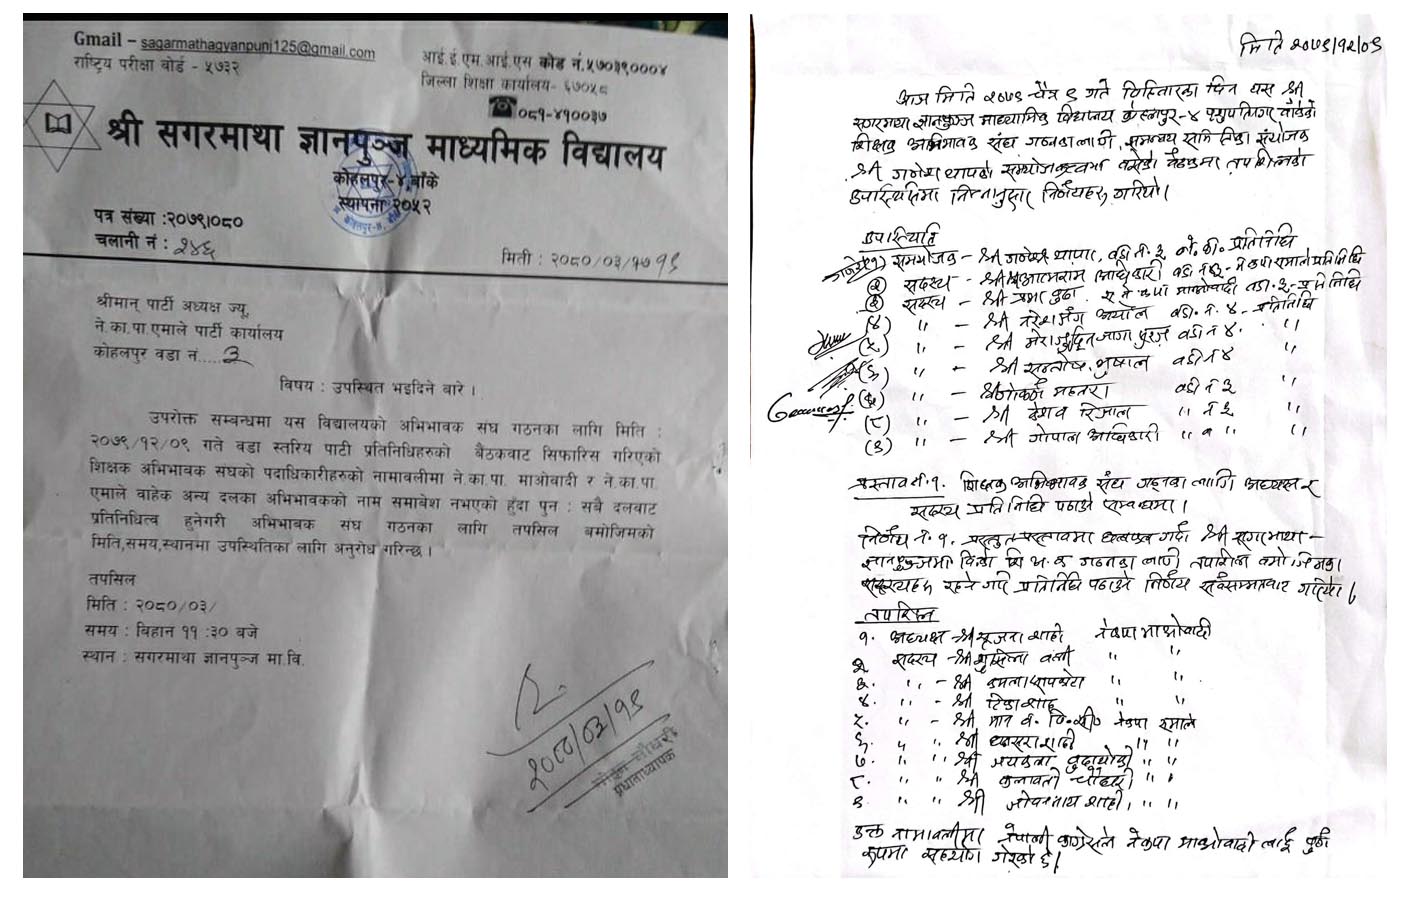 Gmail – sagarmathagyanpunj125@gmail.com
राष्ट्रिय परीक्षा बोर्ड - ५७३२
आई.ई.एम.आई.एस कोड नं.५७०३९०००४
जिल्ला शिक्षा कार्यालय- ६७०५८
☎०८१-४१००३७
श्री सगरमाथा ज्ञानपुञ्ज माध्यमिक विद्यालय
कोहलपुर-४,बाँके
स्थापना २०५२
पत्र संख्या :२०७९।०८०
चलानी नं : २४६
मिती : २०८०/०३/१७ १९
श्रीमान् पार्टी अध्यक्ष ज्यू,
ने.का.पा.एमाले पार्टी कार्यालय
कोहलपुर वडा नं.....3
विषय : उपस्थित भइदिने बारे ।
उपरोक्त सम्बन्धमा यस विद्यालयको अभिभावक संघ गठनका लागि मिति :
२०७९/१२/०९ गते वडा स्तरिय पाटी प्रतिनिधिहरुको बैठकवाट सिफारिस गरिएको
शिक्षक अभिभावक संघको पदाधिकारीहरुको नामावलीमा ने.का.पा. माओवादी र ने.का.पा.
एमाले वाहेक अन्य दलका अभिभावकको नाम समाबेश नभएको हुँदा पुन : सबै दलबाट
प्रतिनिधित्व हुनेगरी अभिभावक संघ गठनका लागि तपसिल बमोजिमको
मिति,समय,स्थानमा उपस्थितिका लागि अनुरोध गरिन्छ ।
तपसिल
मिति : २०८०/०३/
समय : बिहान ११ :३० बजे
स्थान : सगरमाथा ज्ञानपुञ्ज मा.वि.
२०८०/०३/१९
चौधरी
प्रधानाध्यापक
मिति २०७९/१२/०९
आज मिति २०७९ चैत्र ९ गते विहिवारका दिन यस श्री
सगरमाथा ज्ञानपुञ्ज माध्यामिक विद्यालय कोहलपुर-४ बाँकेको
शिक्षक अभिभावक संघ गठनका लागी संयोजक
श्री गणेश थापाको संयोजकत्वमा वसेको बैठकमा तपशिलको
उपस्थितिमा निम्नानुसार निर्णयहरु गरियो।
उपस्थिति
(१) संयोजक - श्री गणेश थापा, वडा नं. ३ ने. काँ. प्रतिनिधि
(२) सदस्य - श्री आत्माराम अधिकारी वडा नं ३ - नेकपा एमाले प्रतिनिधि
(३) सदस्य - श्री प्रभा वुढा, माओवादी वडा. ३ - प्रतिनिधि
(४) " - श्री वडा. नं. ४ - प्रतिनिधि
(५) " - श्री वडा नं ४. "
(६) " - श्री सन्तोष भुषाल वडा नं ४ "
" - महतरा वडा नं ३ "
(८) " - श्री केशव रिजाल " नं ३ "
(९) " - श्री गोपाल अधिकारी " " "
प्रस्ताव नं. १. शिक्षक अभिभावक संघ गठनका लागि अध्यक्ष र
सदस्य प्रतिनिधि पठाउने सम्बन्धमा ।
निर्णय नं. १. प्रस्तुत प्रस्तावमा छलफल गर्दा श्री सगरमाथा -
ज्ञानपुञ्जमा शि. अ. स गठनका लागी तपशिल वमोजिमका
सदस्यहरु रहने गरी प्रतिनिधि पठाउने निर्णय सर्वसम्मतवाट गरियो।
तपशिल
१. अध्यक्ष - श्री शाही नेकपा माओवादी
२ सदस्य - श्री वली " "
३. " - श्री कमला सापकोटा " "
४. " - श्री टिका शाह " "
५. " - श्री मान व. वि.सी. नेकपा एमाले
६. " " श्री शाही " "
७. " " श्री " "
८. " " श्री कलावती चौधरी " "
९. " " श्री शाही, " "
उक्त नामावलीमा नेपाली काग्रेसले नेकपा माओवादी लाई पुर्ण
रुपमा सहयोग गरेको छ।